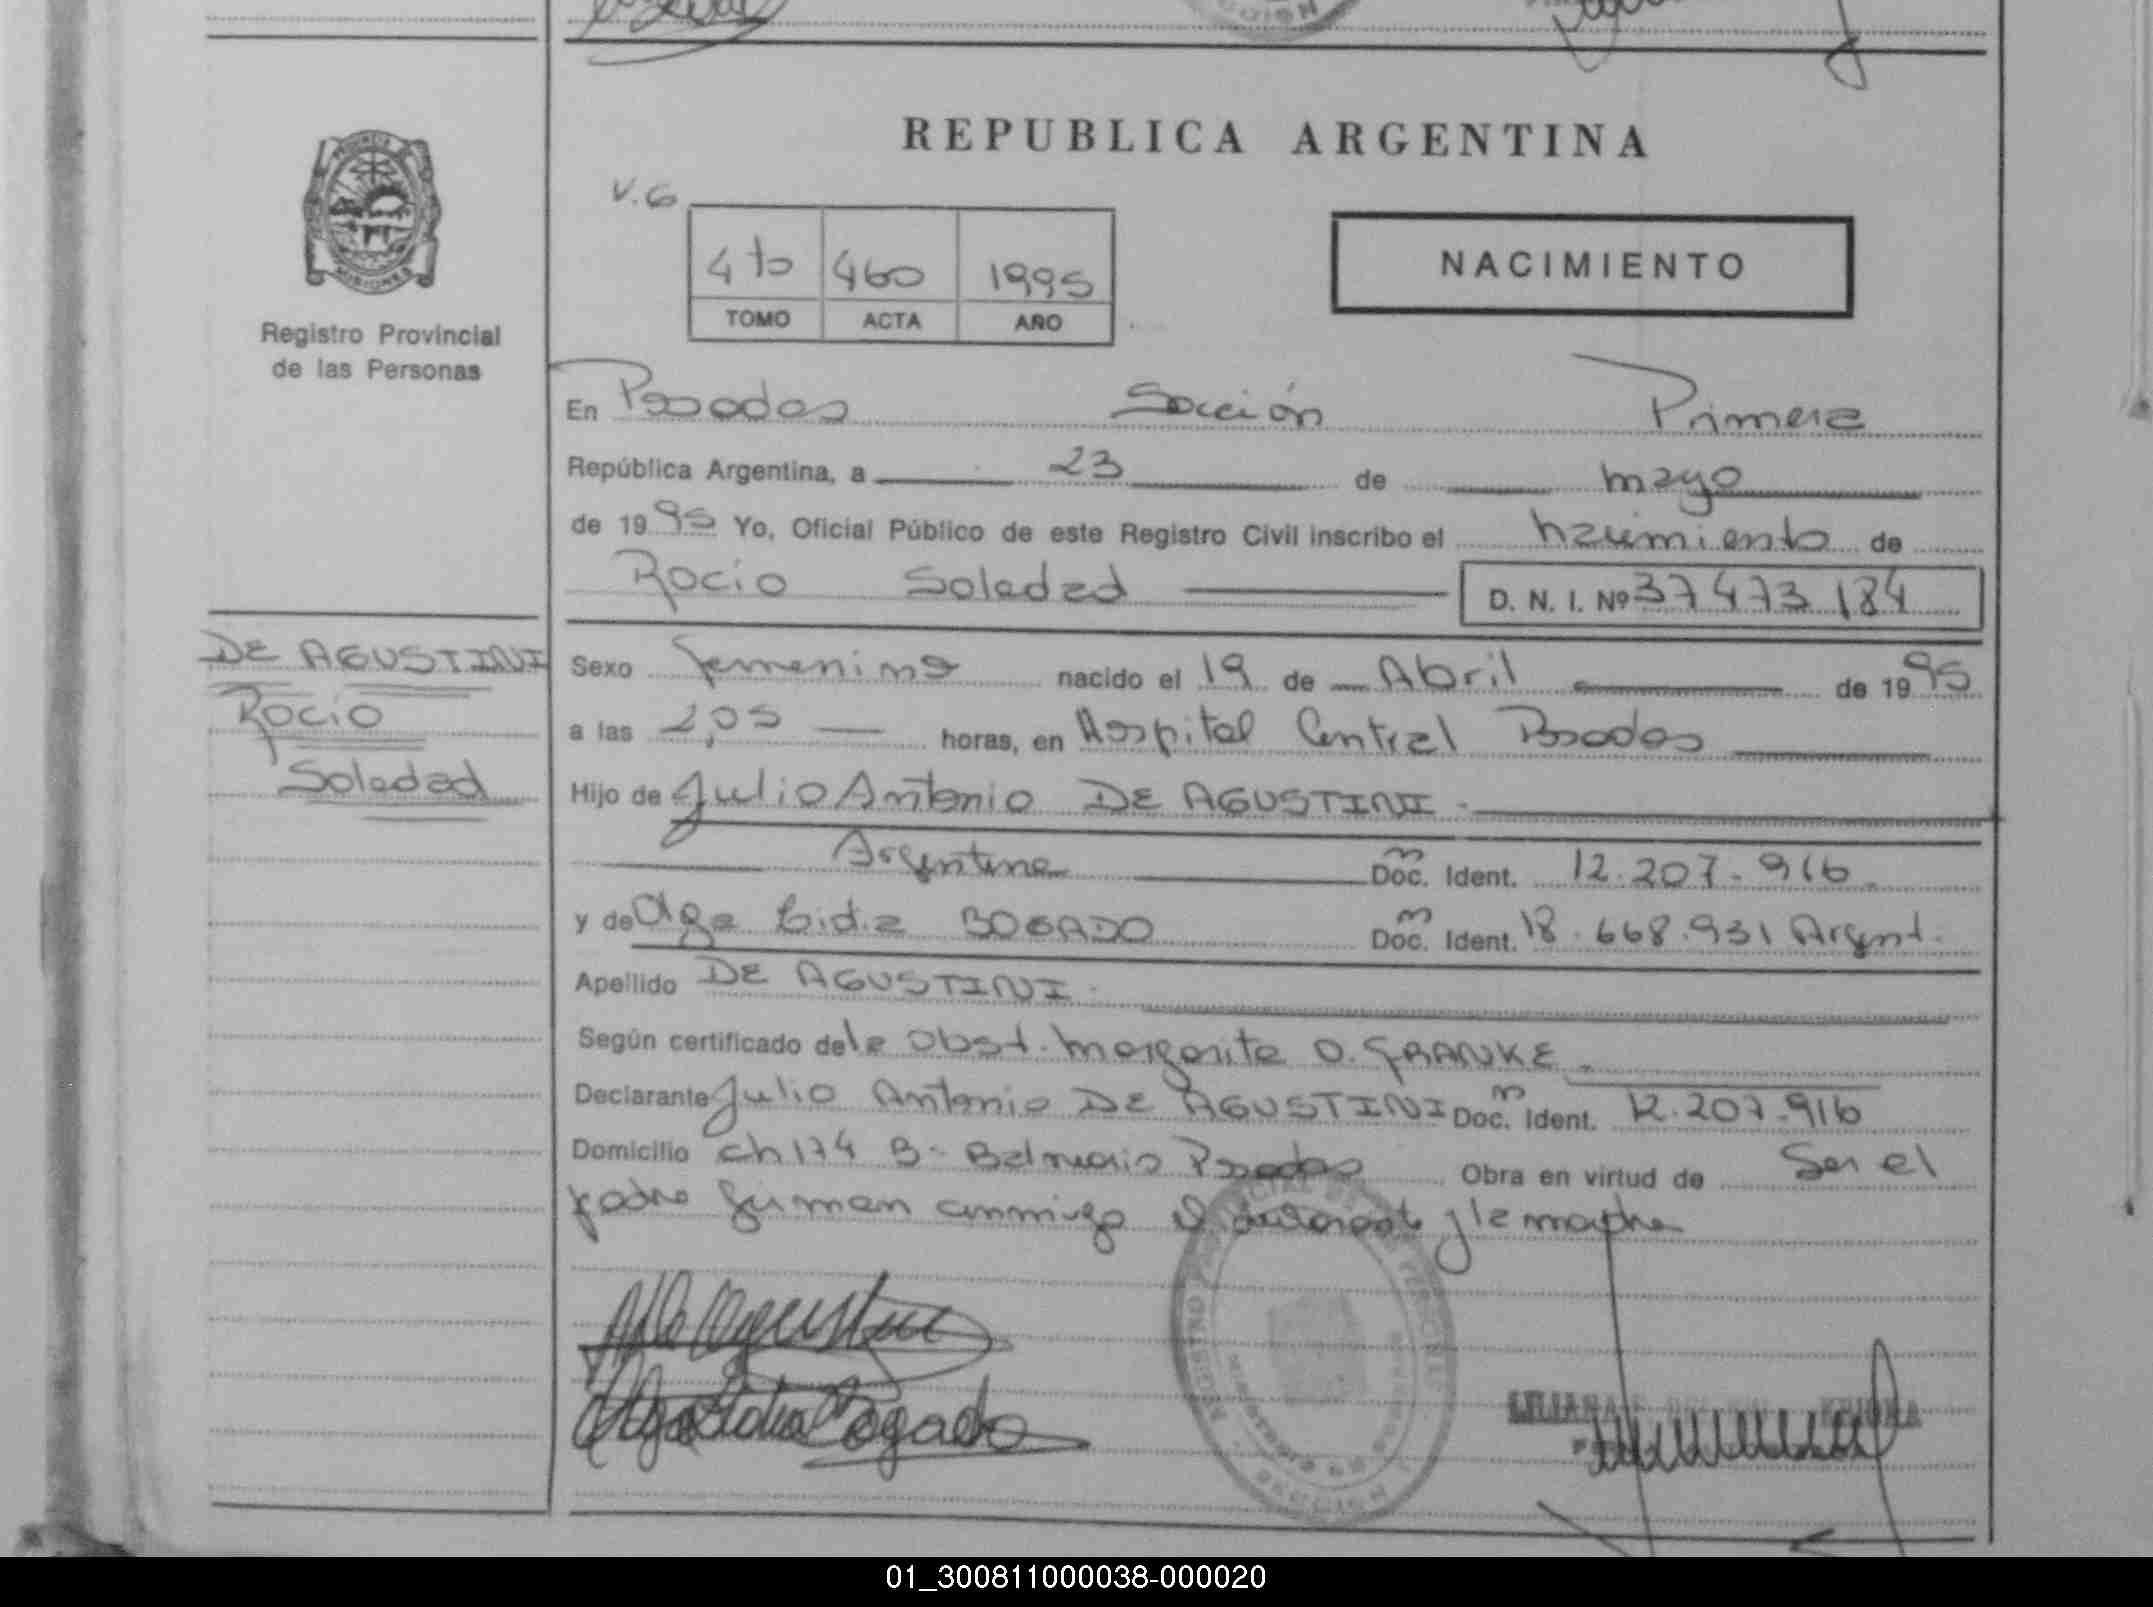 REPUBLICA ARGENTINA
V.G
4to 460 1995
TOMO ACTA AÑO
NACIMIENTO
MISIONES
Registro Provincial
de las Personas
En Posadas Sección Primera
República Argentina, a 23 de mayo
de 1995 Yo, Oficial Público de este Registro Civil inscribo el nacimiento de
Rocio Soledad D. N. I. Nº 37473184
DE AGUSTINI
Rocio
Soledad
Sexo femenino nacido el 19 de Abril de 1995
a las 2,05 horas, en Hospital Central Posadas
Hijo de Julio Antonio DE AGUSTINI.
Argentina Doc. Ident. 12.207.916.
y de Olga Lidia BOGADO Doc. Ident. 18.668.931 Argent.
Apellido DE AGUSTINI.
Según certificado de la Obst. Margarita O. FRANKE.
Declarante Julio Antonio DE AGUSTINI Doc. Ident. 12.207.916
Domicilio Ch 174 B- Balneario Posadas Obra en virtud de Ser el
padre firman conmigo el declarante y la madre
Olga Lidia Bogado
01_300811000038-000020